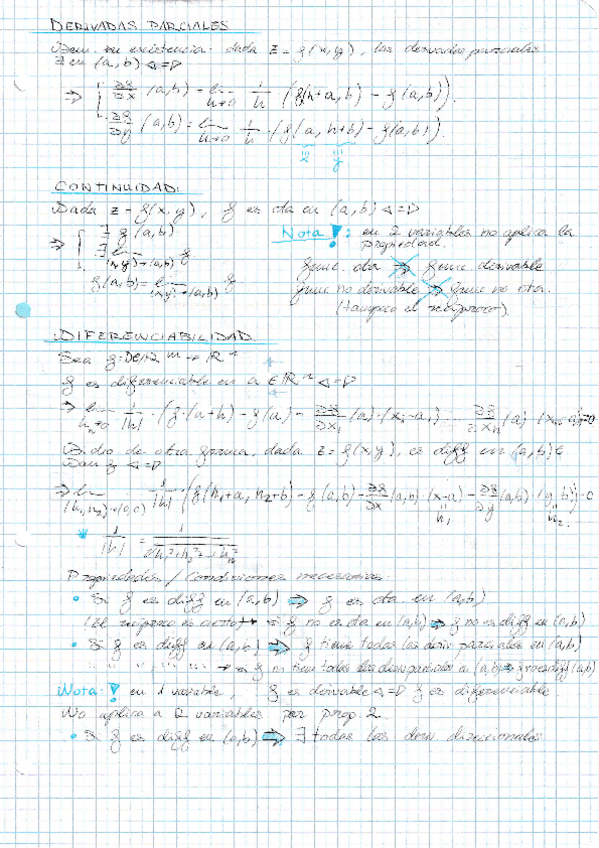 DERIVADAS PARCIALES
Dem. su existencia: dada z = f(x,y), las derivadas parciales
∃ en (a,b) ⟺
⇒ ∂f/∂x (a,b) = lim h→0 1/h · (f(h+a, b) - f(a,b)).
∂f/∂y (a,b) = lim h→0 1/h · (f(a, h+b) - f(a,b)).
x y
CONTINUIDAD:
Dada z = f(x,y), f es cta en (a,b) ⟺
⇒ ∃ f(a,b)
∃ lim (x,y)→(a,b) f
f(a,b) = lim (x,y)→(a,b) f
Nota !: en 2 variables no aplica la
propiedad.
func. cta ⇒ func. derivable
func no derivable ⇒ func no cta.
(tampoco el recíproco)
DIFERENCIABILIDAD
Sea f: D∈ℝᵐ → ℝⁿ
f es diferenciable en a ∈ ℝⁿ ⟺
⇒ lim h→0 1/|h| · (f(a+h) - f(a) - ∂f/∂x₁ (a)·(x₁-a₁) ... - ∂f/∂xₙ (a)·(xₙ-aₙ)) = 0
Dicho de otra forma, dada z = f(x,y), es diff en (a,b) ∈
Dom f ⟺
⇒ lim (h₁,h₂)→(0,0) 1/|h| · (f(h₁+a, h₂+b) - f(a,b) - ∂f/∂x (a,b)·(x-a) - ∂f/∂y (a,b)·(y-b)) = 0
h₁ h₂
* 1/|h| = 1/√(h₁²+h₂²+...+hₙ²)
Propiedades / Condiciones necesarias:
• Si f es diff en (a,b) ⇒ f es cta. en (a,b)
(El recíproco es cierto) → si f no es cta en (a,b) ⇒ f no es diff en (a,b)
• Si f es diff en (a,b) ⇒ f tiene todas las deriv parciales en (a,b)
" " " " → si f no tiene todas las deriv parciales en (a,b) ⇒ f no es diff (a,b)
Nota: ! en 1 variable, f es derivable ⟺ f es diferenciable
No aplica a 2 variables por prop 2.
• Si f es diff en (a,b) ⇒ ∃ todas las deriv. direccionales